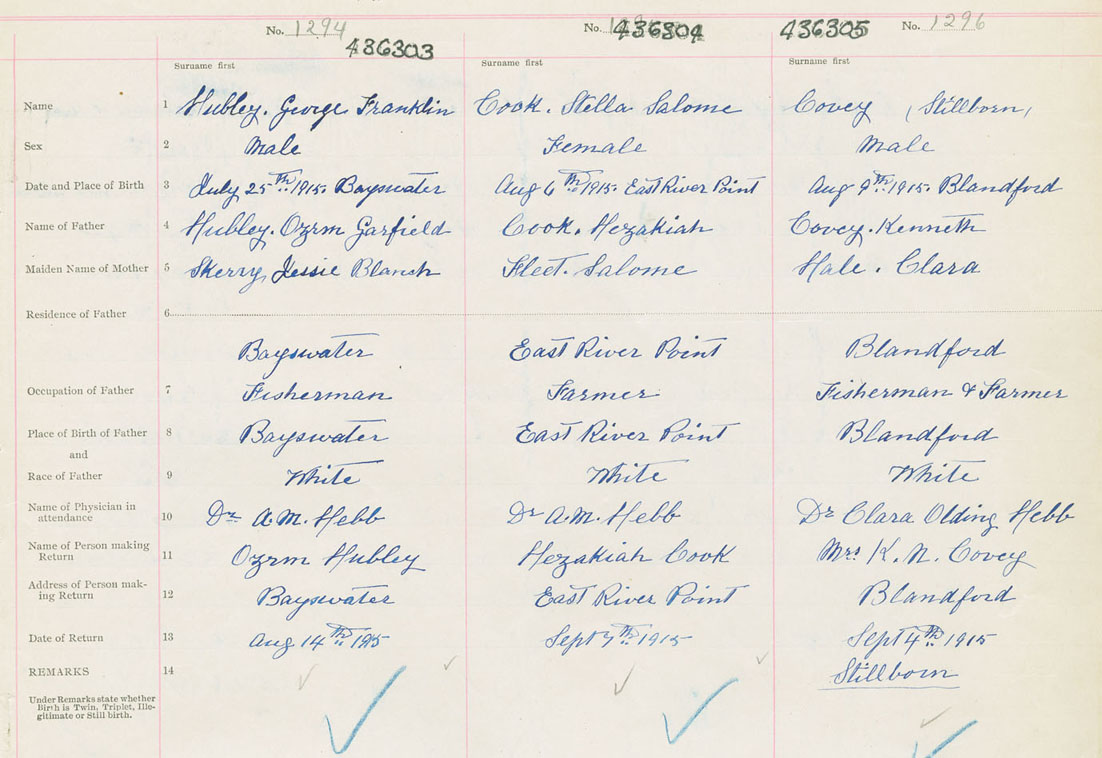 No. 1294 No. 436304 436305 No. 1296
436303
Surname first Surname first Surname first
Name 1 Hubley. George Franklin Cook. Stella Salome Covey (Stillborn)
Sex 2 Male Female Male
Date and Place of Birth 3 July 25th 1915. Bayswater Aug 6th 1915. East River Point Aug 9th 1915. Blandford
Name of Father 4 Hubley. Ozrm Garfield Cook. Hezakiah Covey. Kenneth
Maiden Name of Mother 5 Skerry, Jessie Blanch Fleet. Salome Hale. Clara
Residence of Father 6
Bayswater East River Point Blandford
Occupation of Father 7 Fisherman Farmer Fisherman & Farmer
Place of Birth of Father 8 Bayswater East River Point Blandford
and
Race of Father 9 White White White
Name of Physician in
attendance 10 Dr A.M. Hebb Dr A.M. Hebb Dr Clara Olding Hebb
Name of Person making
Return 11 Ozrm Hubley Hezakiah Cook Mrs K. N. Covey
Address of Person mak-
ing Return 12 Bayswater East River Point Blandford
Date of Return 13 Aug 14th 1915 Sept 7th 1915 Sept 4th 1915
REMARKS 14 Stillborn
Under Remarks state whether
Birth is Twin, Triplet, Ille-
gitimate or Still birth.